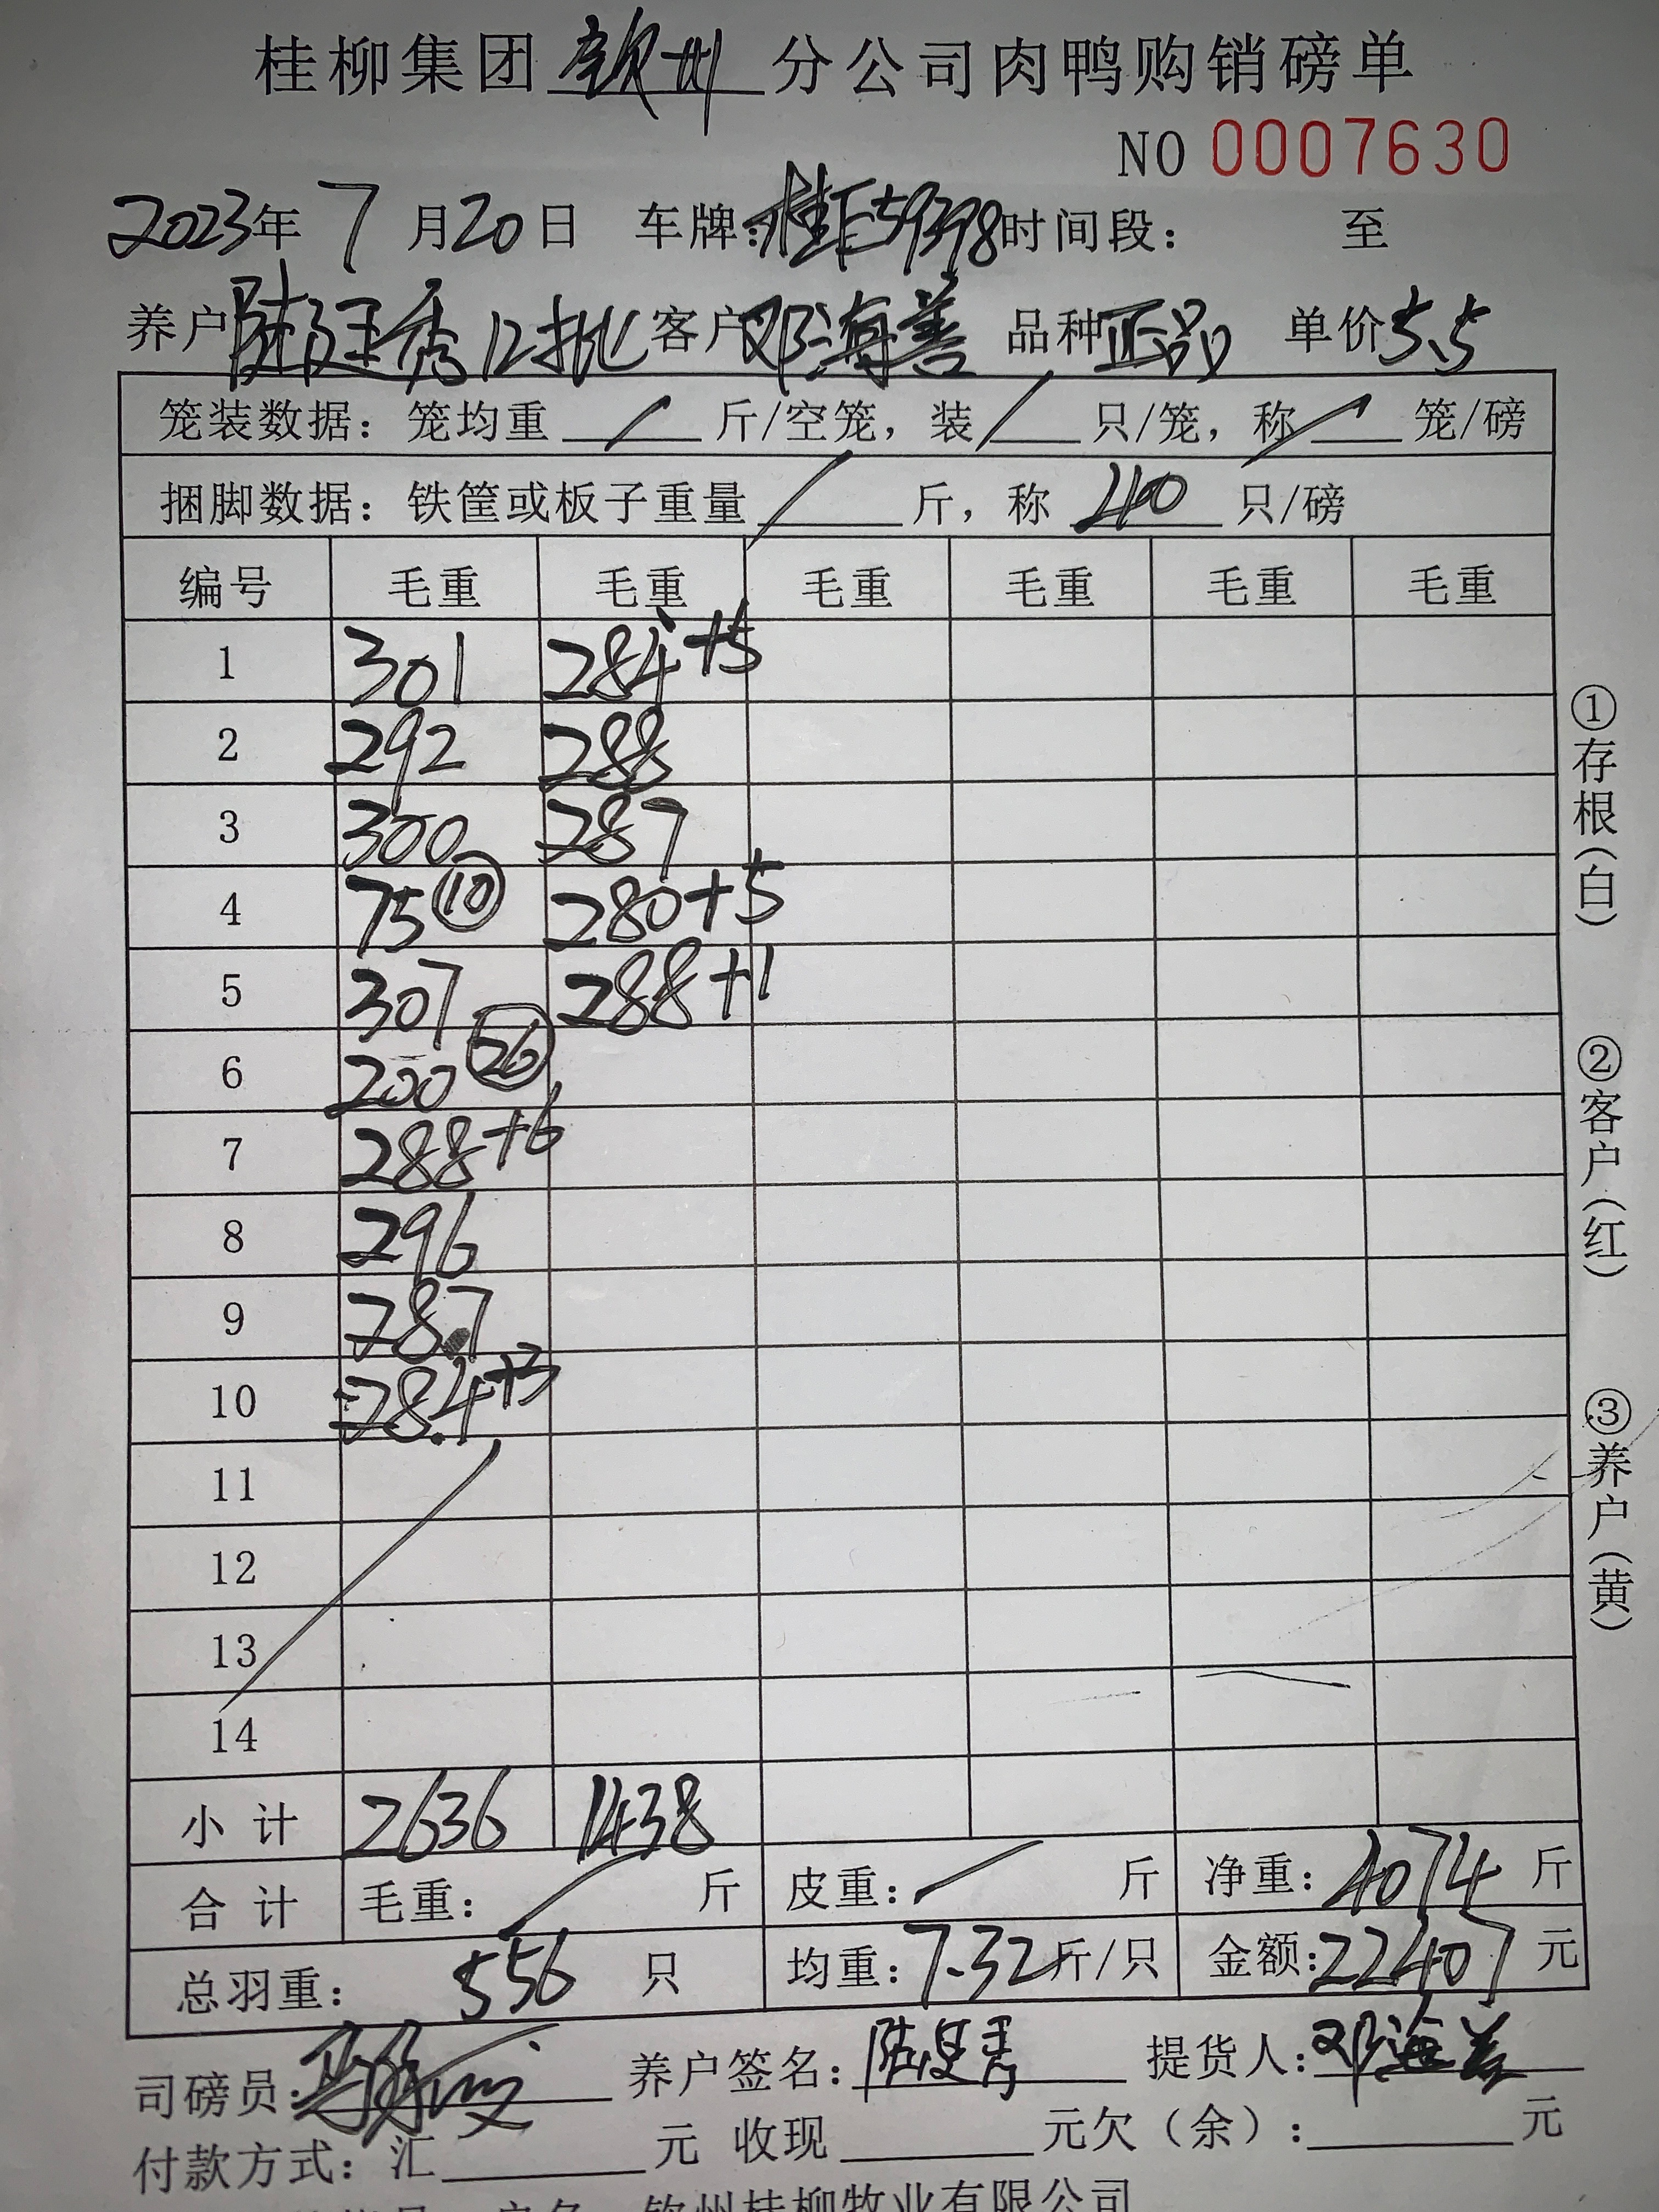 桂柳集团 钦州 分公司肉鸭购销磅单
NO 0007630
2023年 7 月 20 日 车牌: 桂E59398 时间段: 至
养户 陆廷秀 12批 客户 邓海善 品种 正品 单价 5.5
笼装数据: 笼均重 / 斤/空笼, 装 / 只/笼, 称 / 笼/磅
捆脚数据: 铁筐或板子重量 / 斤, 称 40 只/磅
编号 毛重 毛重 毛重 毛重 毛重 毛重
1 301 284+5
2 292 288
3 300 287
4 75 ⑩ 280+5
5 307 288+1
6 200 ㉖
7 288+6
8 296
9 287
10 284+3
11
12
13
14
小 计 2636 1438
合 计 毛重: / 斤 皮重: / 斤 净重: 4074 斤
总羽重: 556 只 均重: 7.32 斤/只 金额: 22407 元
司磅员: 养户签名: 提货人: 邓海善
付款方式: 汇 元 收现 元欠(余): 元
钦州桂柳牧业有限公司
①存根(白)
②客户(红)
③养户(黄)